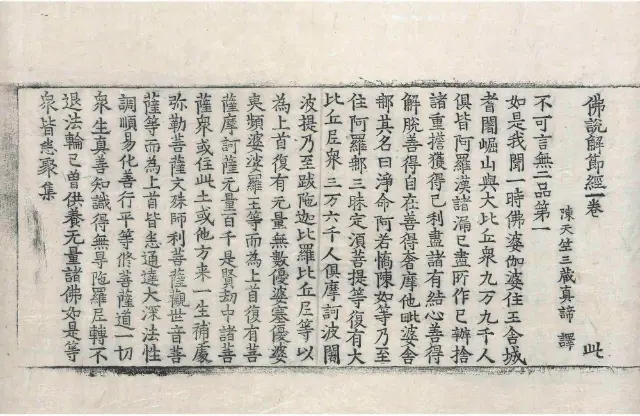 佛說解節經一卷
此
陳天竺三藏真諦譯
不可言無二品第一
如是我聞一時佛婆伽婆住王舍城
耆闍崛山與大比丘衆九万九千人
俱皆阿羅漢諸漏已盡所作已辦捨
諸重擔獲得已利盡諸有結心善得
解脫善得自在善得奢摩他毗婆舍
那其名曰淨命阿若憍陳如等乃至
住阿羅那三昧定須菩提等復有大
比丘尼衆三万六千人俱摩訶波闍
波提乃至跋陁迦比羅比丘尼等以
為上首復有无量無數優婆塞優婆
夷頻婆娑羅王等而為上首復有菩
薩摩訶薩无量百千是賢劫中諸菩
薩衆或住此土或他方來一生補處
弥勒菩薩文殊師利菩薩觀世音菩
薩等而為上首皆悉通達大深法性
調順易化善行平等修菩薩道一切
衆生真善知識得無㝵陁羅尼轉不
退法輪已曽供養无量諸佛如是等
衆皆悉聚集